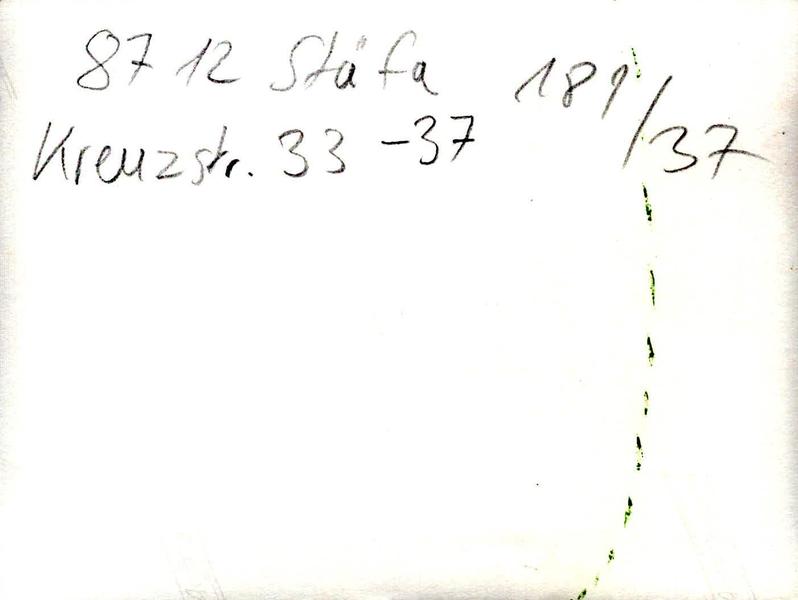 8712 Stäfa 189/37
Kreuzstr. 33-37